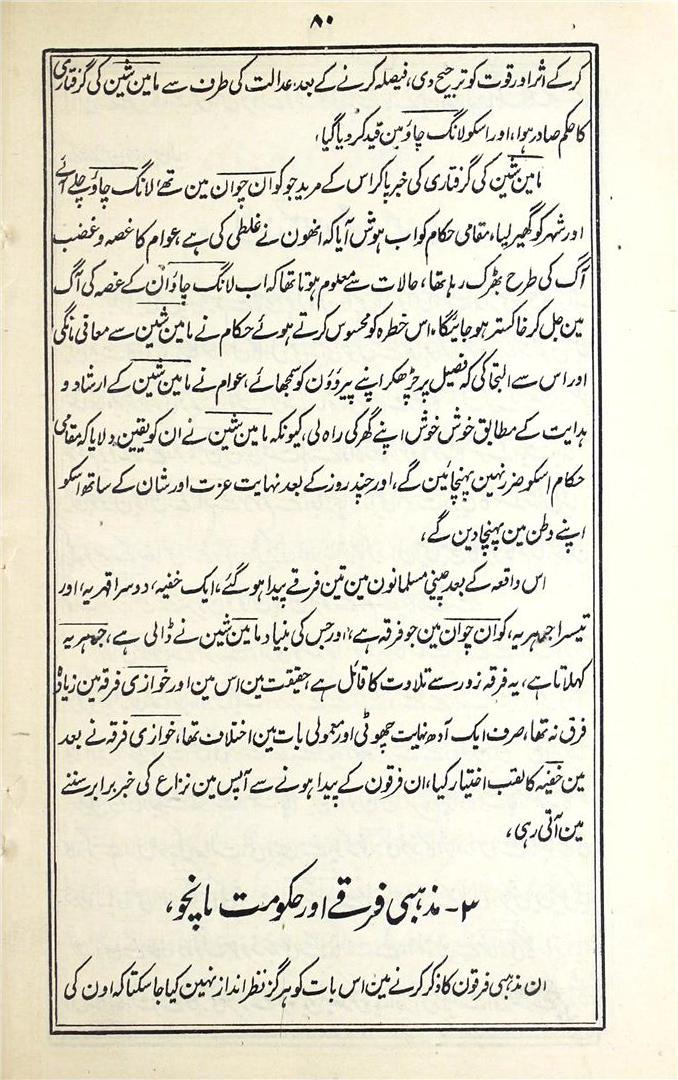 ۸۰
کرکے اثر اور قوت کو ترجیح دی، فیصلہ کرنے کے بعد، عدالت کی طرف سے مامین شین کی گرفتاری
کا حکم صادر ہوا، اور اسکو لانگ چاؤ مین قید کر دیا گیا،
مامین شین کی گرفتاری کی خبر پا کر اس کے مرید جو کوان چوان مین تھے لانگ چاؤ چلے آئے
اور شہر کو گھیر لیا، مقامی حکام کو اب ہوش آیا کہ انھون نے غلطی کی ہے، عوام کا غصہ و غضب
آگ کی طرح بھڑک رہا تھا، حالات سے معلوم ہوتا تھا کہ اب لانگ چاؤ ان کے غصہ کی آگ
مین جل کر خاکستر ہو جائیگا، اس خطرہ کو محسوس کرتے ہوئے حکام نے مامین شین سے معافی مانگی
اور اس سے التجا کی کہ فصیل پر چڑھکر اپنے پیرووُن کو سمجھائے، عوام نے مامین شین کے ارشاد و
ہدایت کے مطابق خوش خوش اپنے گھر کی راہ لی، کیونکہ مامین شین نے ان کو یقین دلایا کہ مقامی
حکام اسکو ضرر نہین پہنچائین گے، اور چند روز کے بعد نہایت عزت اور شان کے ساتھ اسکو
اپنے وطن مین پہنچا دین گے،
اس واقعہ کے بعد چینی مسلمانون مین تین فرقے پیدا ہو گئے، ایک خفیہ، دوسرا قہریہ، اور
تیسرا جمہریہ، کوان چوان مین جو فرقہ ہے، اور جس کی بنیاد مامین شین نے ڈالی ہے، جمہریہ
کہلاتا ہے، یہ فرقہ زور سے تلاوت کا قائل ہے، حقیقت مین اس مین اور خوازی فرقہ مین زیادہ
فرق نہ تھا، صرف ایک آدھ نہایت چھوٹی اور معمولی بات مین اختلاف تھا، خوازی فرقہ نے بعد
مین خفیہ کا لقب اختیار کیا، ان فرقون کے پیدا ہونے سے آپس مین نزاع کی خبر برابر سننے
مین آتی رہی،
۳- مذہبی فرقے اور حکومت مانچو،
ان مذہبی فرقون کا ذکر کرنے مین اس بات کو ہرگز نظر انداز نہین کیا جا سکتا کہ اون کی